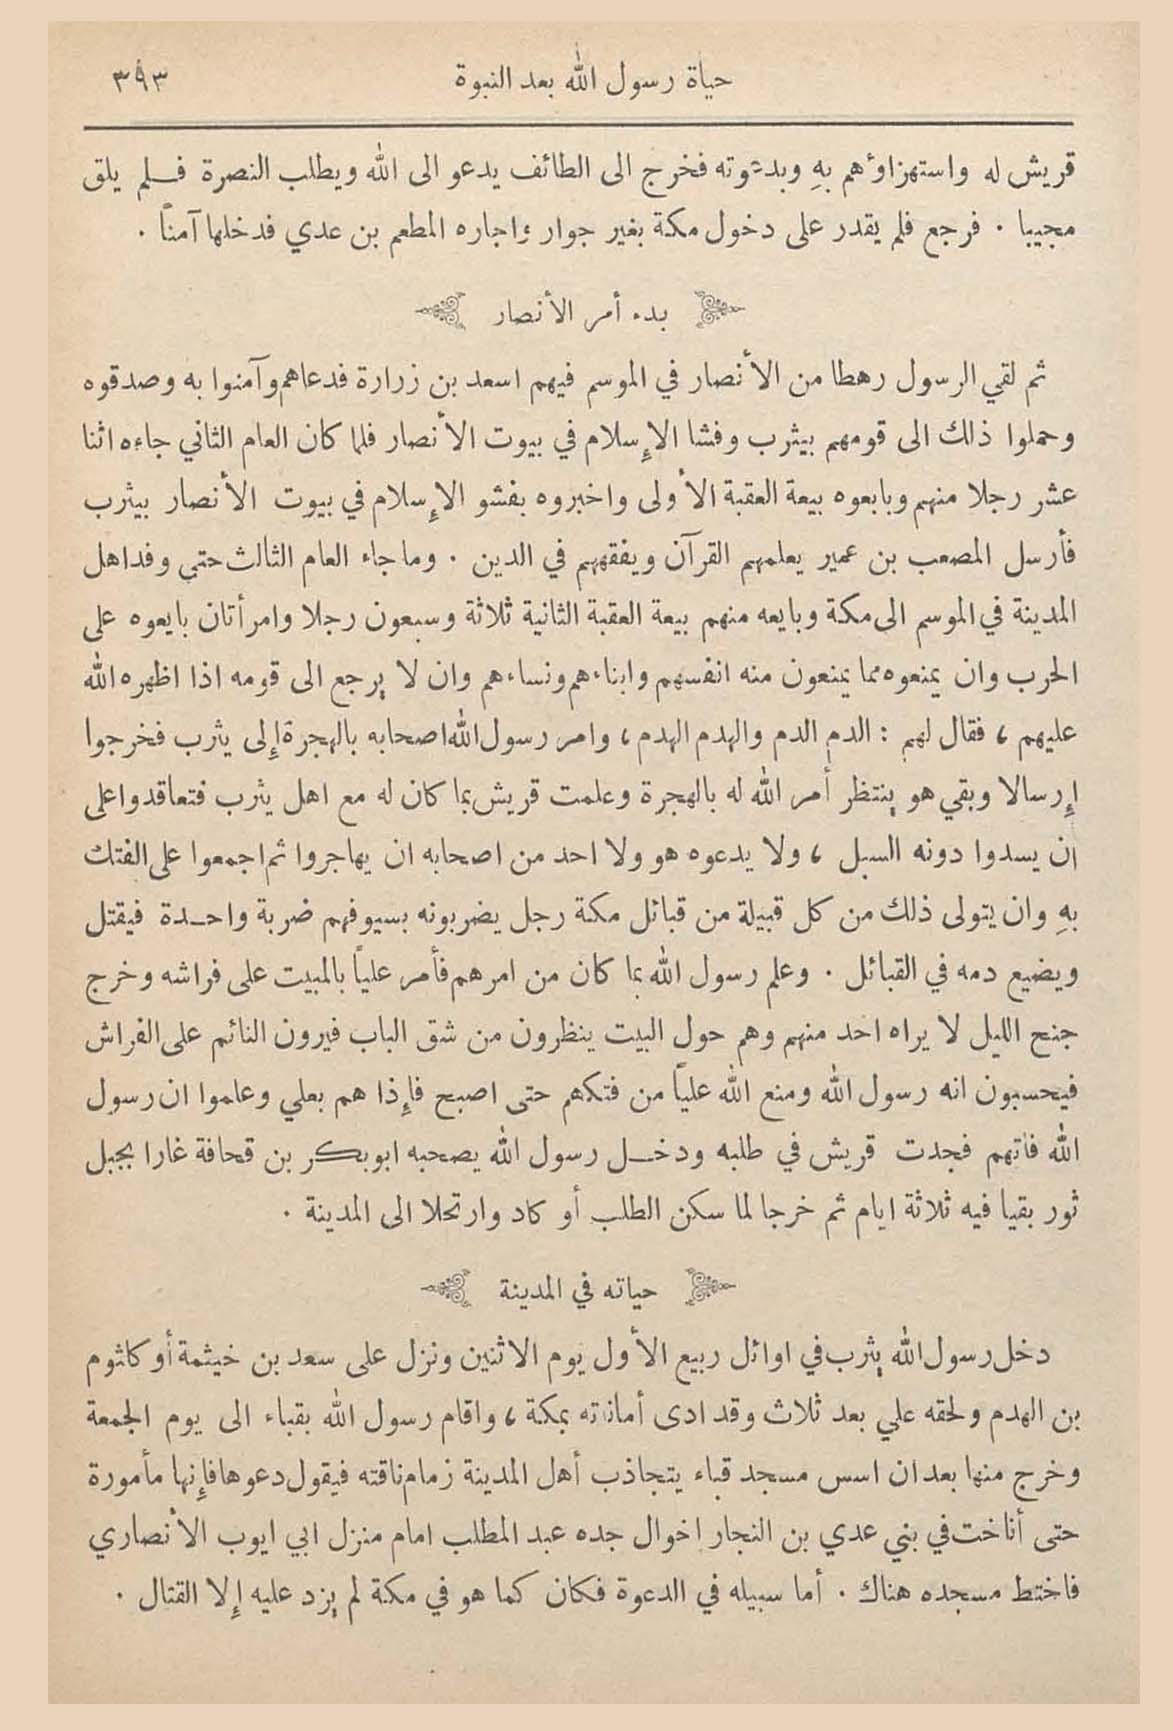 حياة رسول الله بعد النبوة ٣٩٣
قريش له واستهزاؤهم بهِ وبدعوته فخرج الى الطائف يدعو الى الله ويطلب النصرة فلم يلق
مجيبا . فرجع فلم يقدر على دخول مكة بغير جوار واجاره المطعم بن عدي فدخلها آمناً .
بدء أمر الأنصار
ثم لقي الرسول رهطا من الأنصار في الموسم فيهم اسعد بن زرارة فدعاهم وآمنوا به وصدقوه
وحملوا ذلك الى قومهم بيثرب وفشا الإسلام في بيوت الأنصار فلما كان العام الثاني جاءه اثنا
عشر رجلا منهم وبابعوه بيعة العقبة الأولى واخبروه بفشو الإسلام في بيوت الأنصار بيثرب
فأرسل المصعب بن عمير يعلمهم القرآن ويفقههم في الدين . وما جاء العام الثالث حتى وفد اهل
المدينة في الموسم الى مكة وبايعه منهم بيعة العقبة الثانية ثلاثة وسبعون رجلا وامرأتان بايعوه على
الحرب وان يمنعوه مما يمنعون منه انفسهم وابناءهم ونساءهم وان لا يرجع الى قومه اذا اظهره الله
عليهم ، فقال لهم : الدم الدم والهدم الهدم ، وامر رسول الله اصحابه بالهجرة إلى يثرب فخرجوا
إرسالا وبقي هو ينتظر أمر الله له بالهجرة وعلمت قريش بما كان له مع اهل يثرب فتعاقدوا على
ان يسدوا دونه السبل ، ولا يدعوه هو ولا احد من اصحابه ان يهاجروا ثم اجمعوا على الفتك
بهِ وان يتولى ذلك من كل قبيلة من قبائل مكة رجل يضربونه بسيوفهم ضربة واحدة فيقتل
ويضيع دمه في القبائل . وعلم رسول الله بما كان من امرهم فأمر علياً بالمبيت على فراشه وخرج
جنح الليل لا يراه احد منهم وهم حول البيت ينظرون من شق الباب فيرون النائم على الفراش
فيحسبون انه رسول الله ومنع الله علياً من فتكهم حتى اصبح فإذا هم بعلي وعلموا ان رسول
الله فاتهم فجدت قريش في طلبه ودخل رسول الله يصحبه ابوبكر بن قحافة غارا بجبل
ثور بقيا فيه ثلاثة ايام ثم خرجا لما سكن الطلب أو كاد وارتحلا الى المدينة .
حياته في المدينة
دخل رسول الله يثرب في اوائل ربيع الأول يوم الاثنين ونزل على سعد بن خيثمة أو كلثوم
بن الهدم ولحقه علي بعد ثلاث وقد ادى أماناته بمكة ، واقام رسول الله بقباء الى يوم الجمعة
وخرج منها بعد ان اسس مسجد قباء يتجاذب أهل المدينة زمام ناقته فيقول دعوها فإنها مأمورة
حتى أناخت في بني عدي بن النجار اخوال جده عبد المطلب امام منزل ابي ايوب الأنصاري
فاختط مسجده هناك . أما سبيله في الدعوة فكان كما هو في مكة لم يزد عليه إلا القتال .